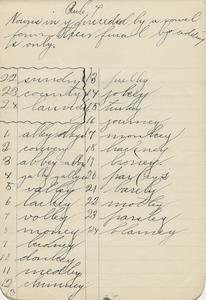 Rule 4
Nouns in y preceded by a vowel
form their plural by adding
s only.
22 sundry
23 county
24 laundry
1 alley
2 convoy
3 abbey
4 galley
5 valley
6 barley
7 volley
8 money
9 kidney
10 donkey
11 medley
12 chimney
13 pulley
14 jockey
15 turkey
16 journey
17 monkey
18 hackney
19 honey
20
21 barely
22 motley
23 parsley
24 blarney